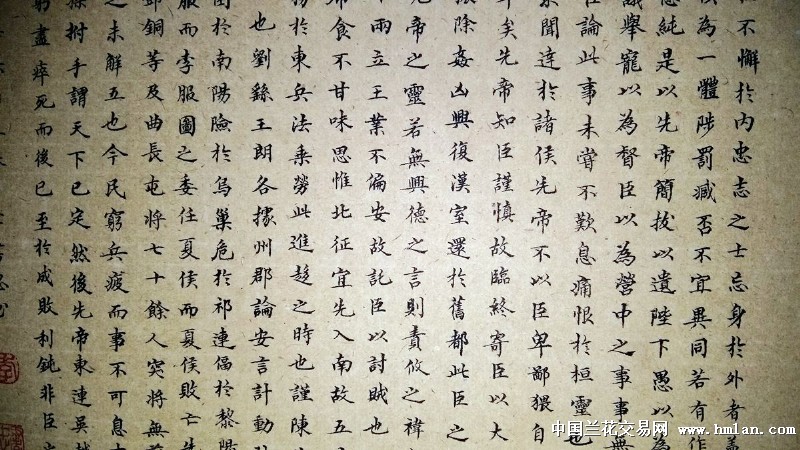 不懈於內忠志之士忘身於外者蓋
為一體陟罰臧否不宜異同若有作
純是以先帝簡拔以遺陛下愚以為
舉寵以為督臣以為營中之事事無
論此事未嘗不歎息痛恨於桓靈也
聞達於諸侯先帝不以臣卑鄙猥自
矣先帝知臣謹慎故臨終寄臣以大
除姦凶興復漢室還於舊都此臣之
帝之靈若無興德之言則責攸之禕
兩立王業不偏安故託臣以討賊也
食不甘味思惟北征宜先入南故五
於東兵法乘勞此進趍之時也謹陳
也劉繇王朗各據州郡論安言計動
於南陽險於烏巢危於祁連偪於黎陽
服而李服圖之委任夏侯而夏侯敗亡
銅等及曲長屯將七十餘人突將無
之未解五也今民窮兵疲而事不可息
拊手謂天下已定然後先帝東連吳越
窮盡瘁死而後已至於成敗利鈍非臣
中国兰花交易网 www.hmlan.com